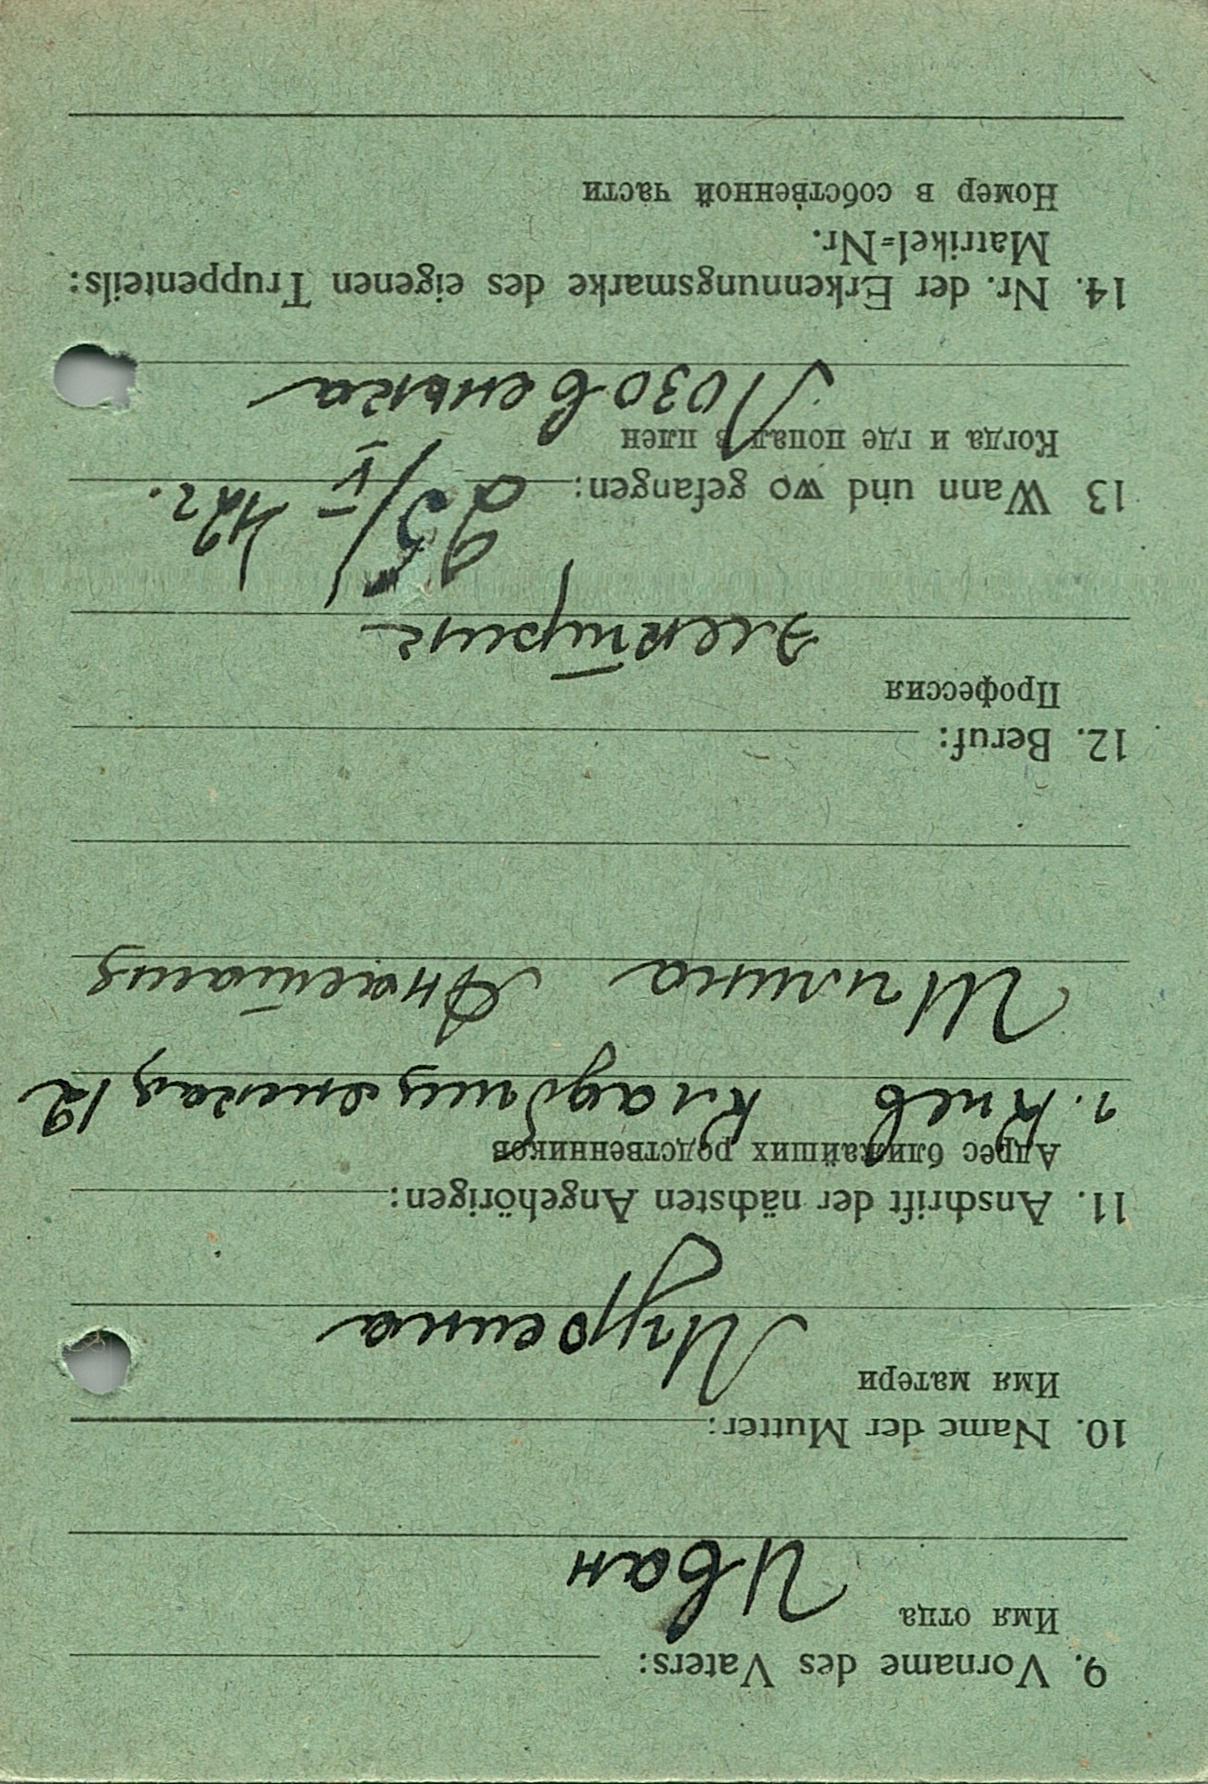 9. Vorname des Vaters:
Имя отца
Иван
10. Name der Mutter:
Имя матери
11. Anschrift der nächsten Angehörigen:
Адрес ближайших родственников
г. Киев Кладбищенская 12
Шилина Анастасия
12. Beruf:
Профессия
электрик
13 Wann und wo gefangen: 25/V – 42г.
Когда и где попал в плен
Лозовенька
14. Nr. der Erkennungsmarke des eigenen Truppenteils:
Matrikel=Nr.
Номер в собственной части